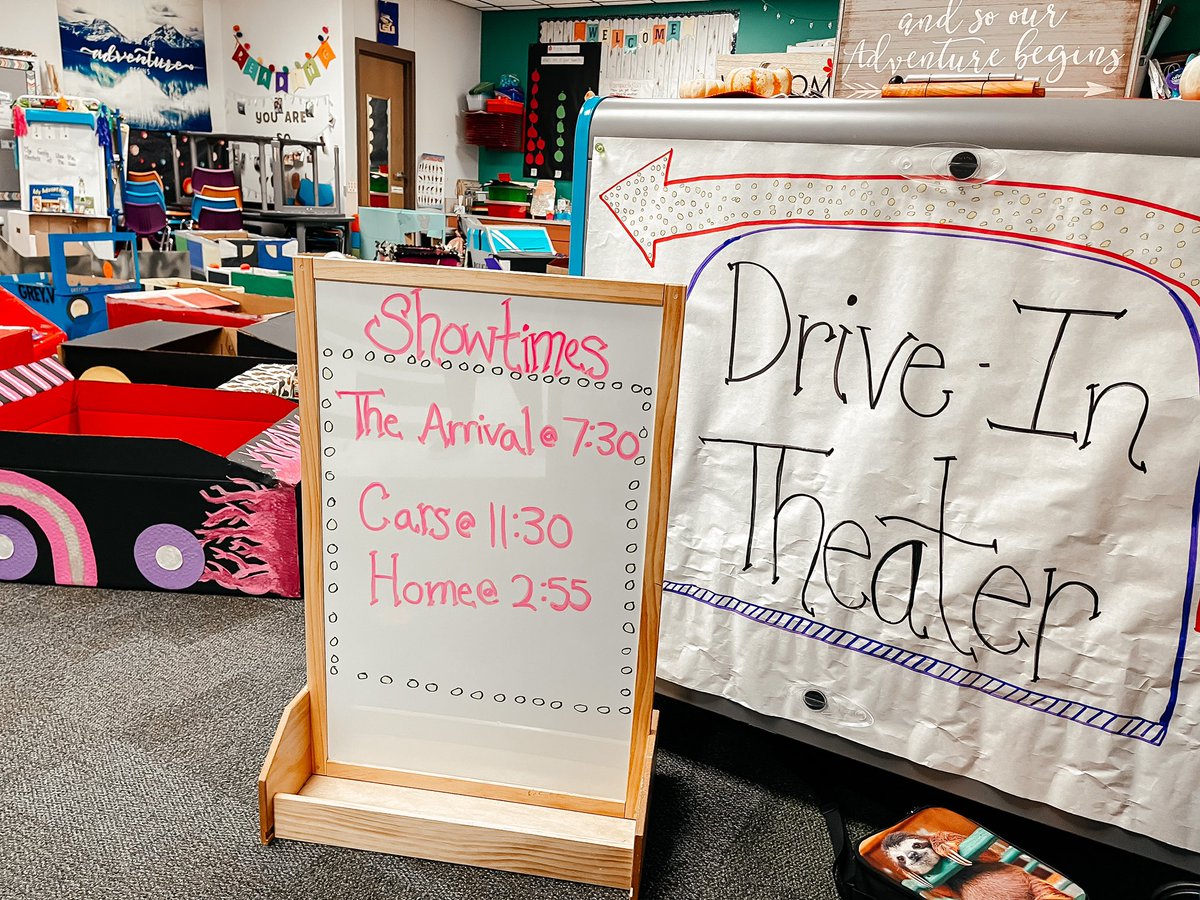 adventure
BEGINS
YOU ARE
WELCOME
and so our
Adventure begins
GREY.V
Showtimes
The Arrival @ 7:30
Cars @ 11:30
Home @ 2:55
Drive-In
Theater